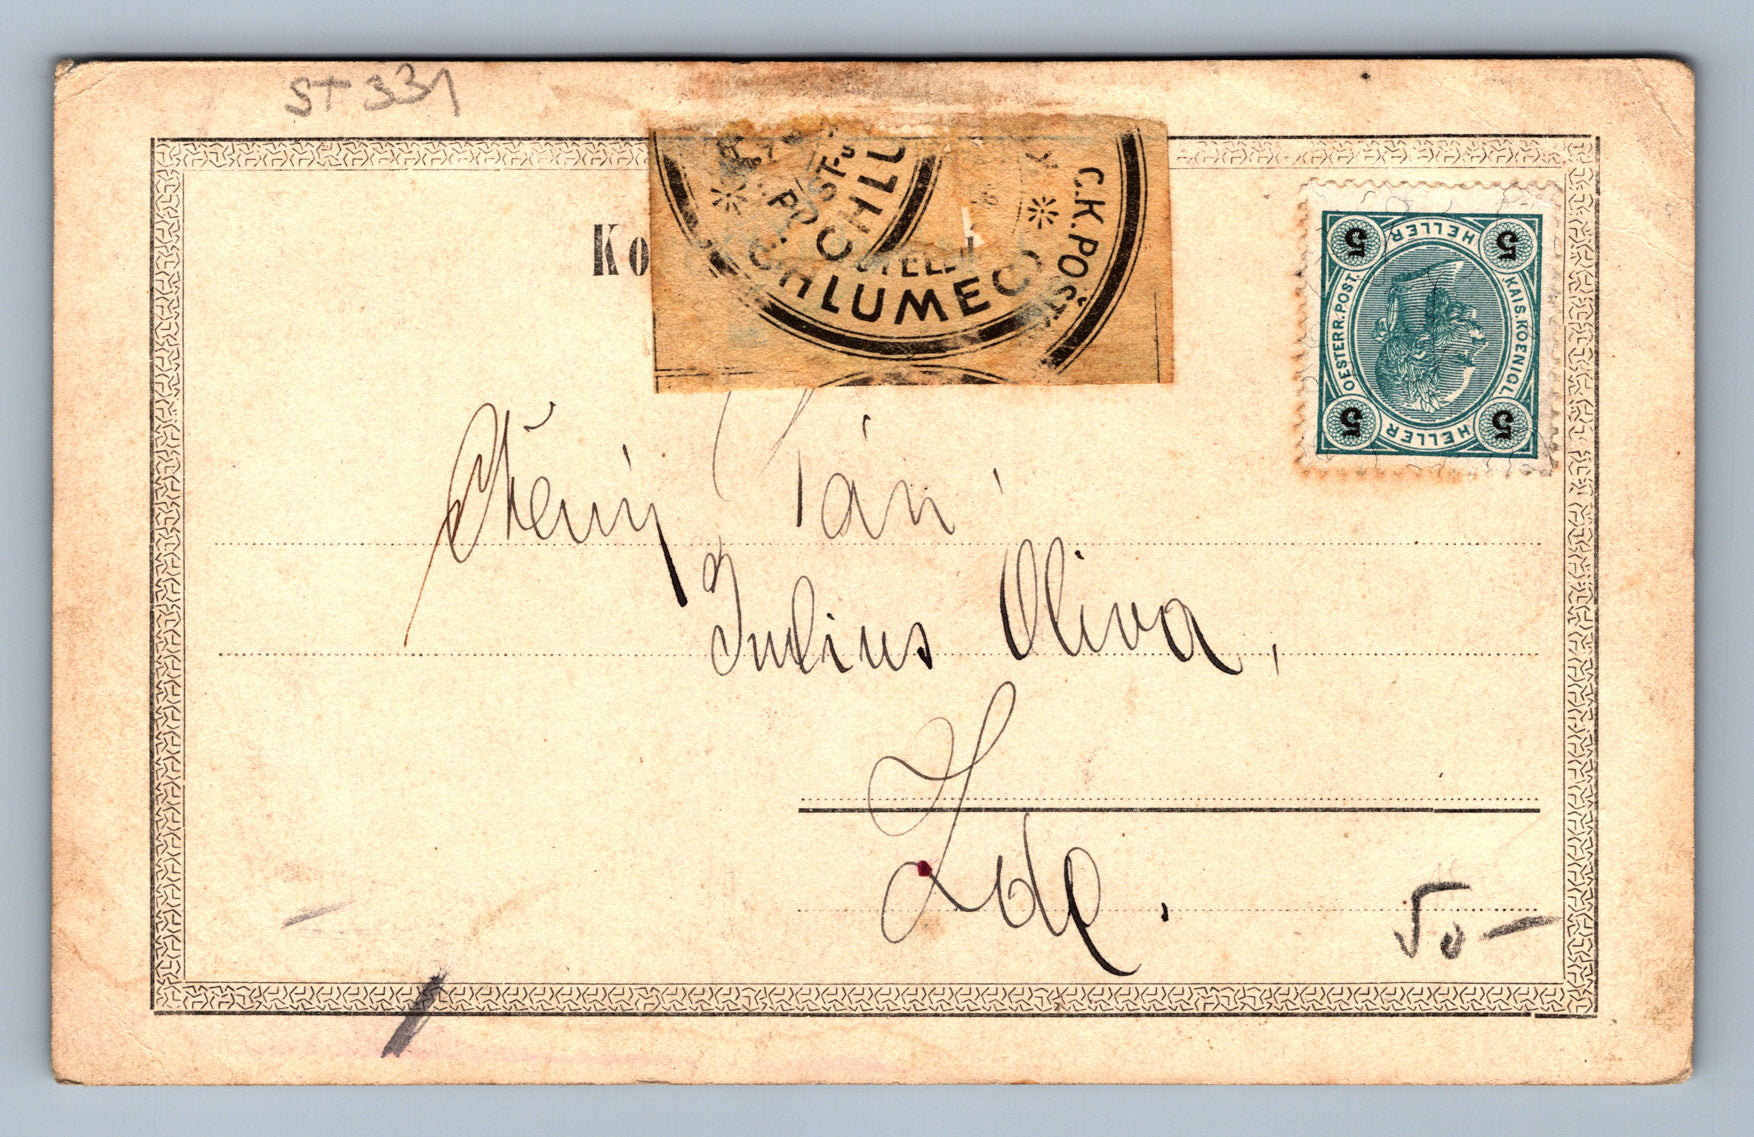 ST 331
Ko
C.K. POŠT
CHLUMEC
CHLU
POST-U
HELLER
5 5
OESTERR. POST. KAIS. KOENIGL.
5 5
HELLER
Ctěný Pán
Julius Oliva,
Zde.
50-